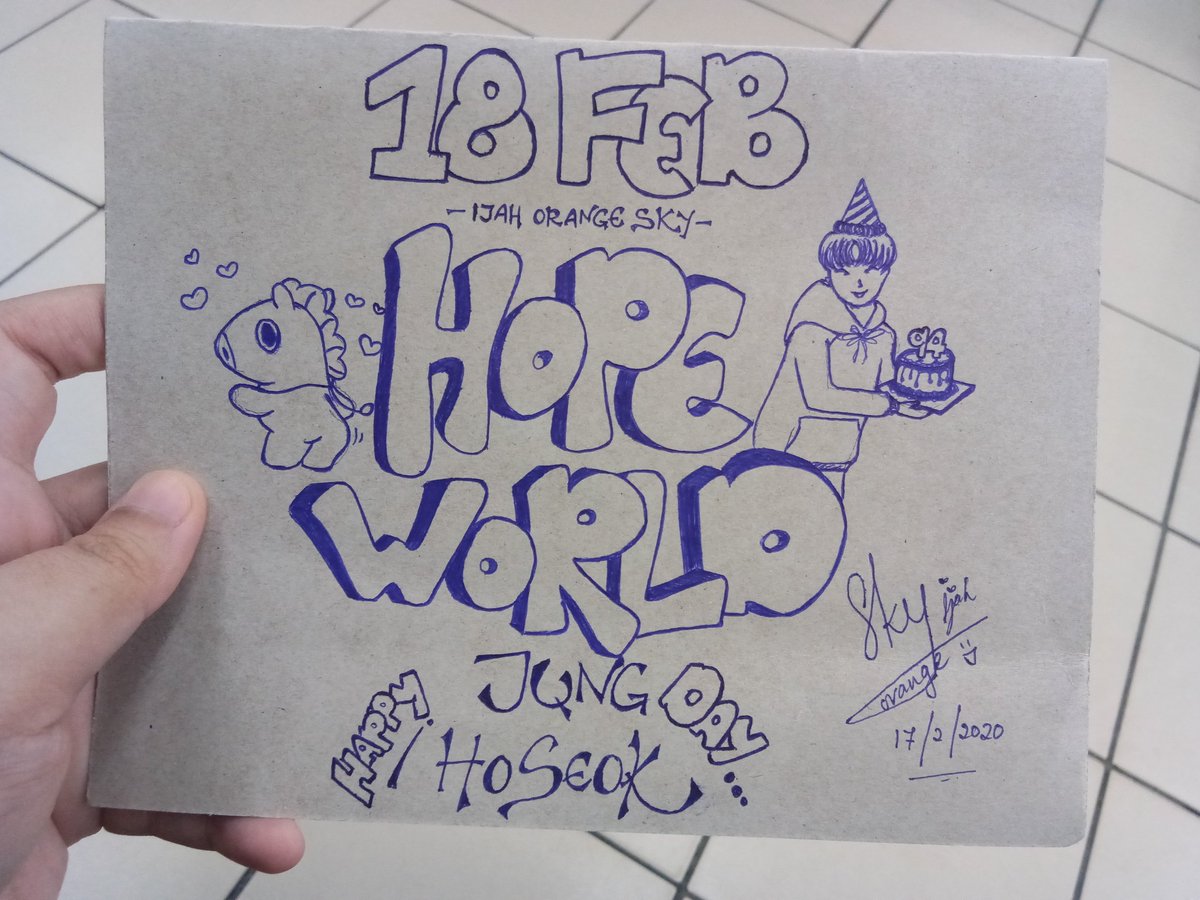 18 FEB
- IJAH ORANGE SKY -
HOPE
94
WORLD
Sky Ijah
orange
17/2/2020
HAPPY
JUNG
HOSEOK
DAY...